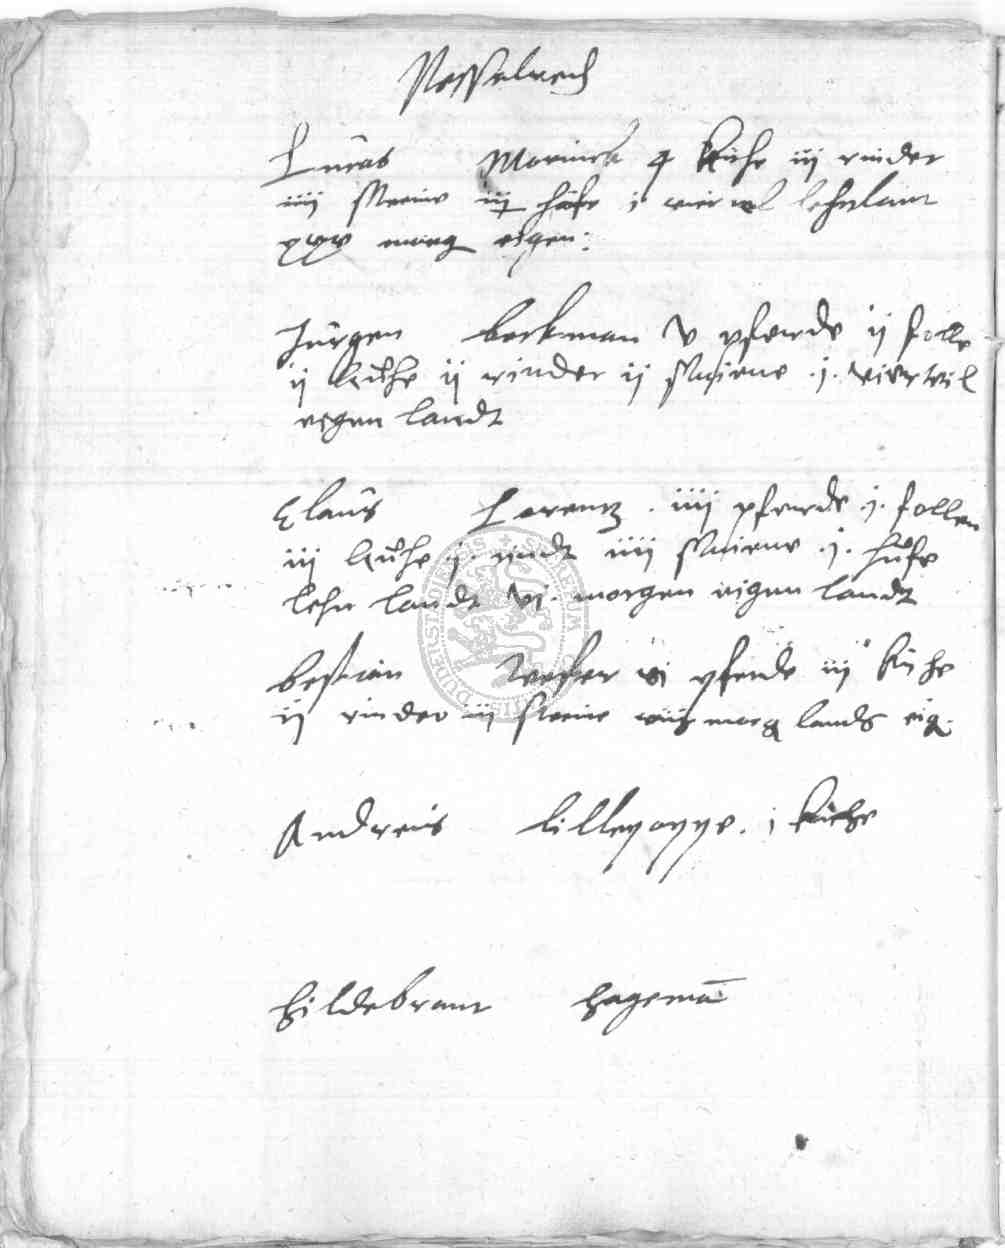 Nesselredh
Lucas Morinck 4 kuhe iij rinder
iiij schweine iij hufe i viertel lehnlant
xxv morg eigen:
Jurgen beckman v pferde ij folle
ij kuhe ij rinder ij schweine .j. viertel
eigen landt
Claus Lorentz . iiij pferde .j. follen
iij kuhe j rindt iiij schweine .j. hufe
lehn landt vj. morgen eigen landt
bestian weser vi pferde iij kuhe
ij rinder iij schweine morg lands eig.
Andreis lilleyoppe . j kuhe
hildebrant hagemā
SIGILLUM DUDERSTADENSIS